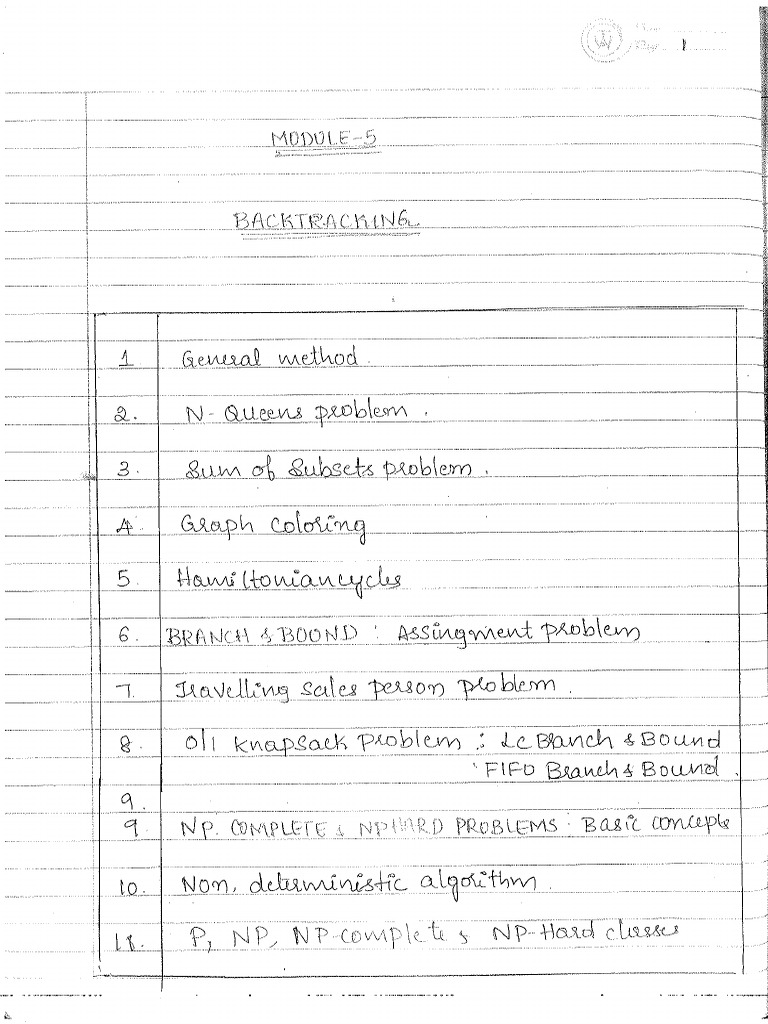 1
MODULE-5
BACKTRACKING
1 General method.
2. N-Queens problem.
3. Sum of Subsets problem.
4 Graph coloring
5. Hamiltoniancycles
6. BRANCH & BOOND : Assingment problem
7. Travelling sales person problem.
8. 0/1 knapsack problem : LC Branch & Bound
FIFO Branch & Bound.
9.
9. NP. COMPLETE & NP HARD PROBLEMS : Basic concepts
10. Non, deterministic algorithm.
11. P, NP, NP-complete & NP-Hard classes